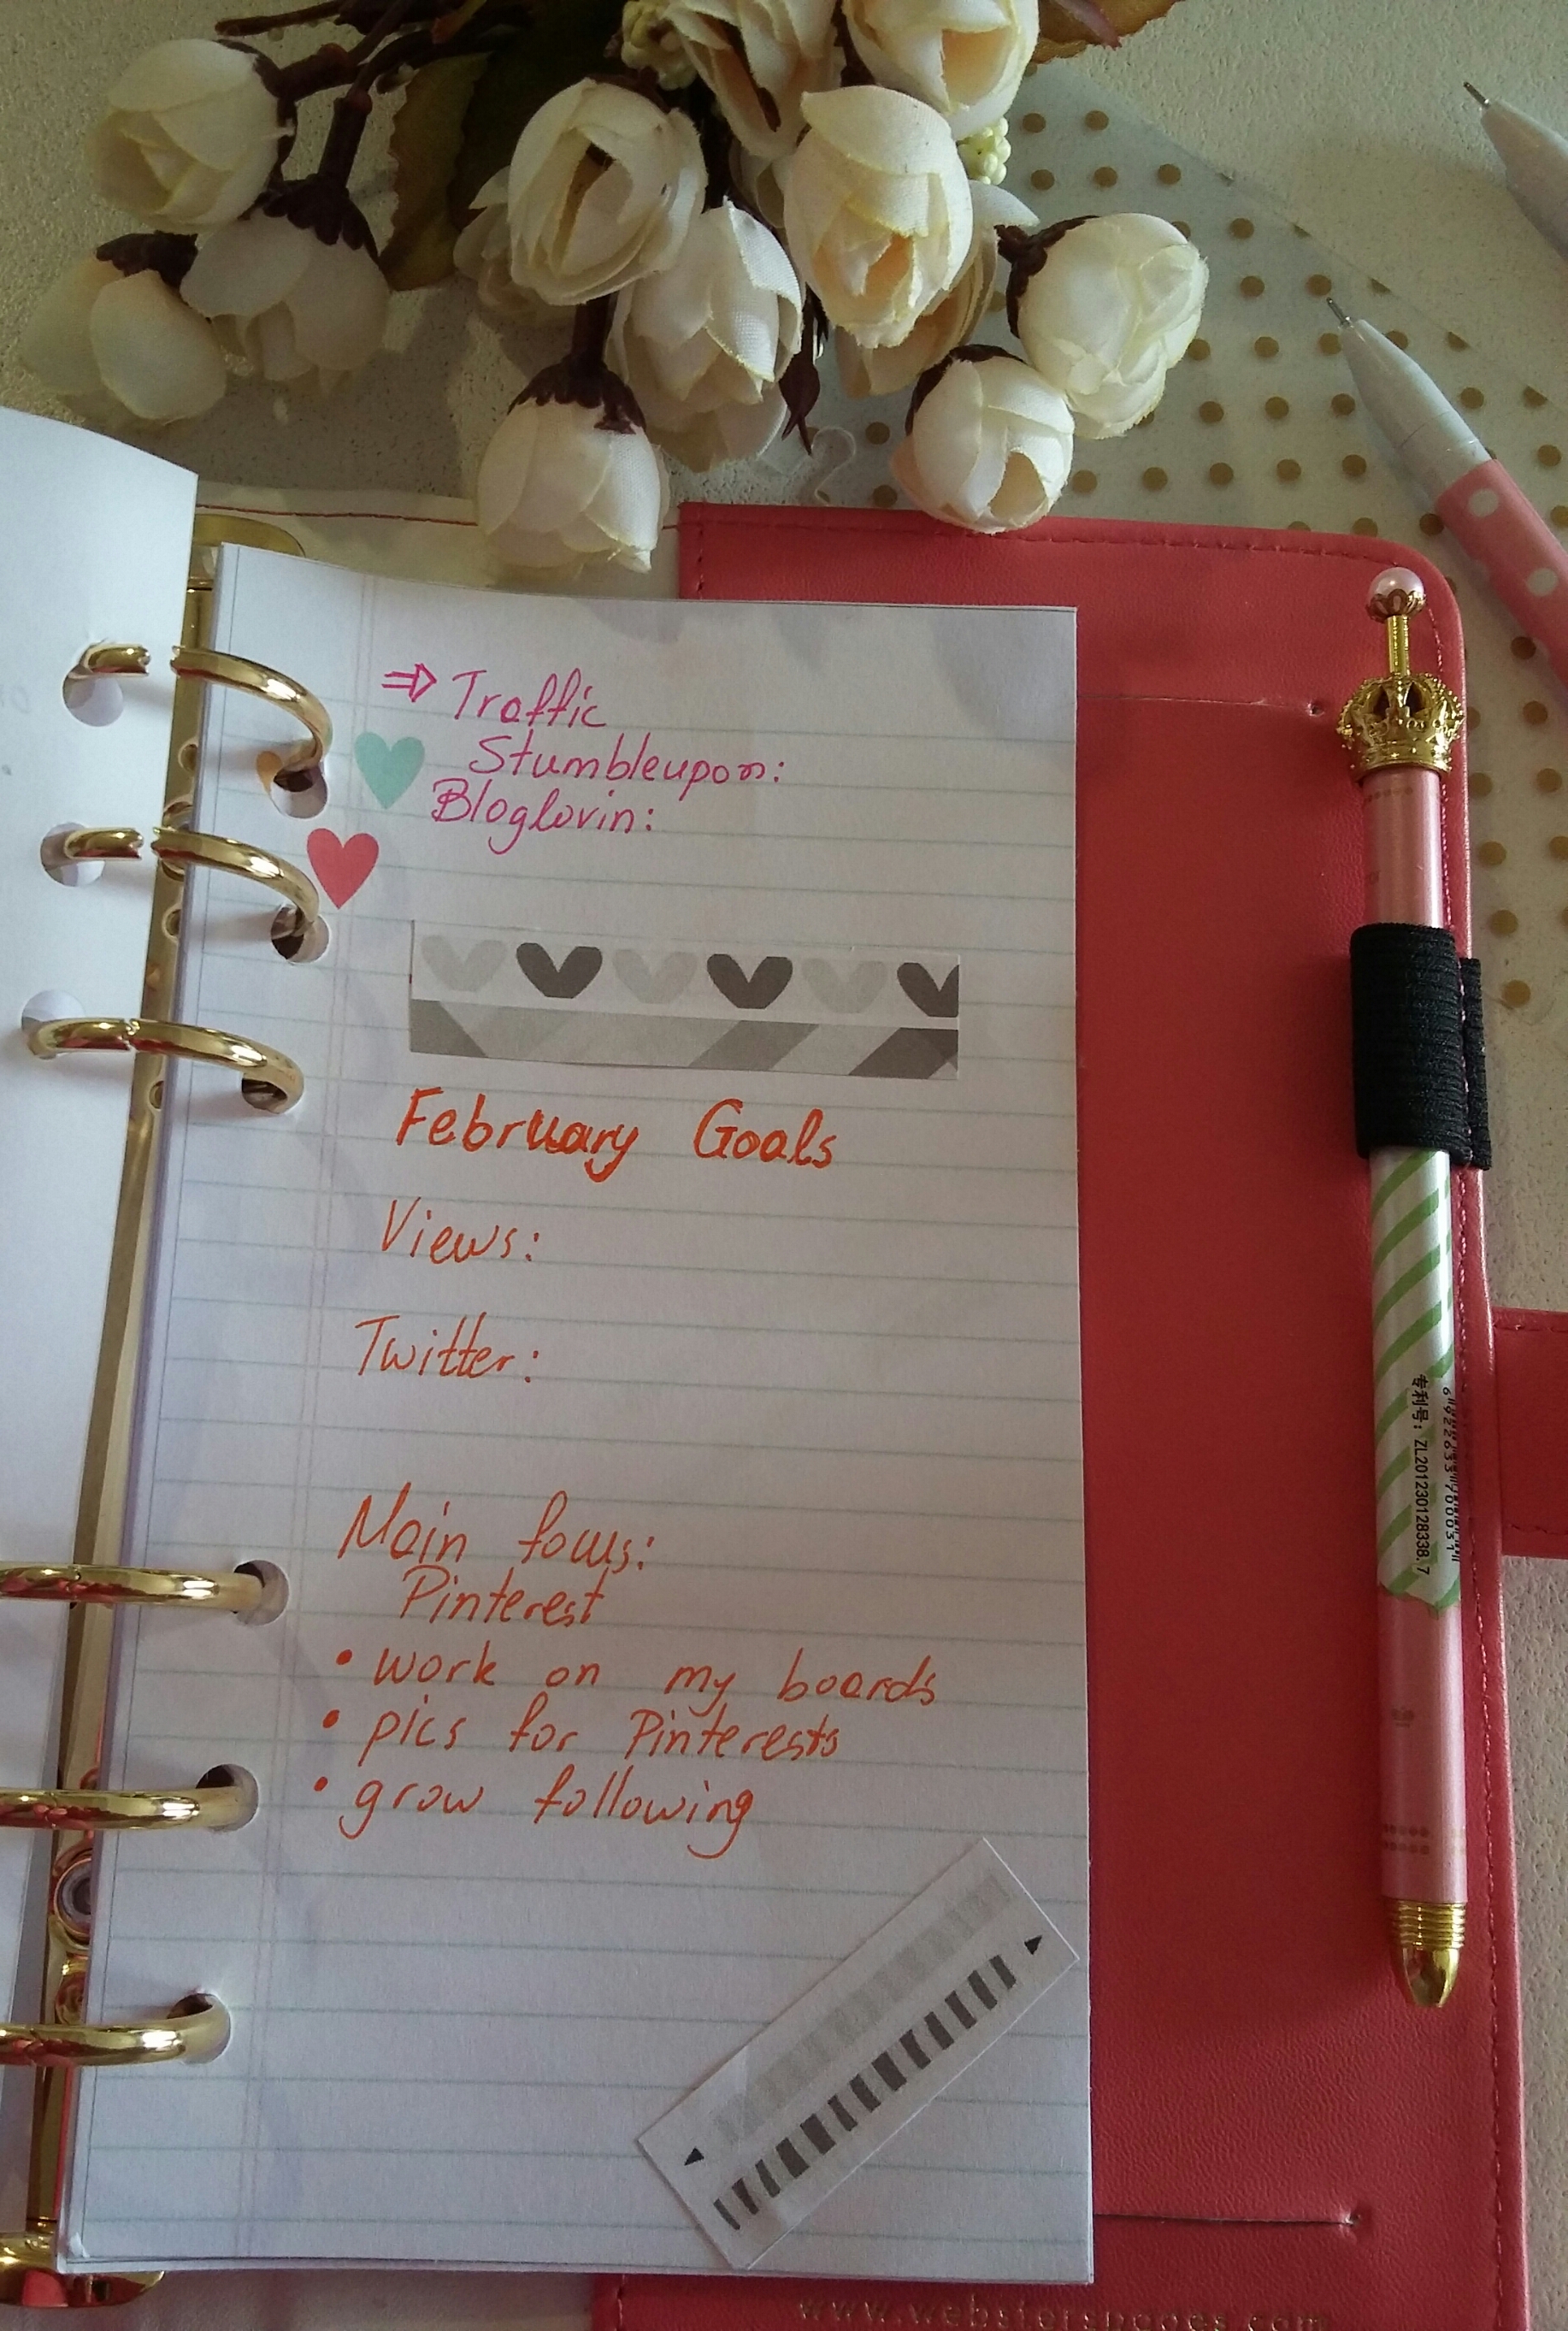 ⇒ Traffic
Stumbleupon:
Bloglovin:
February Goals
Views:
Twitter:
Main focus:
Pinterest
• work on my boards
• pics for Pinterests
• grow following
专利号: ZL201230128338.7
www.websterspages.com